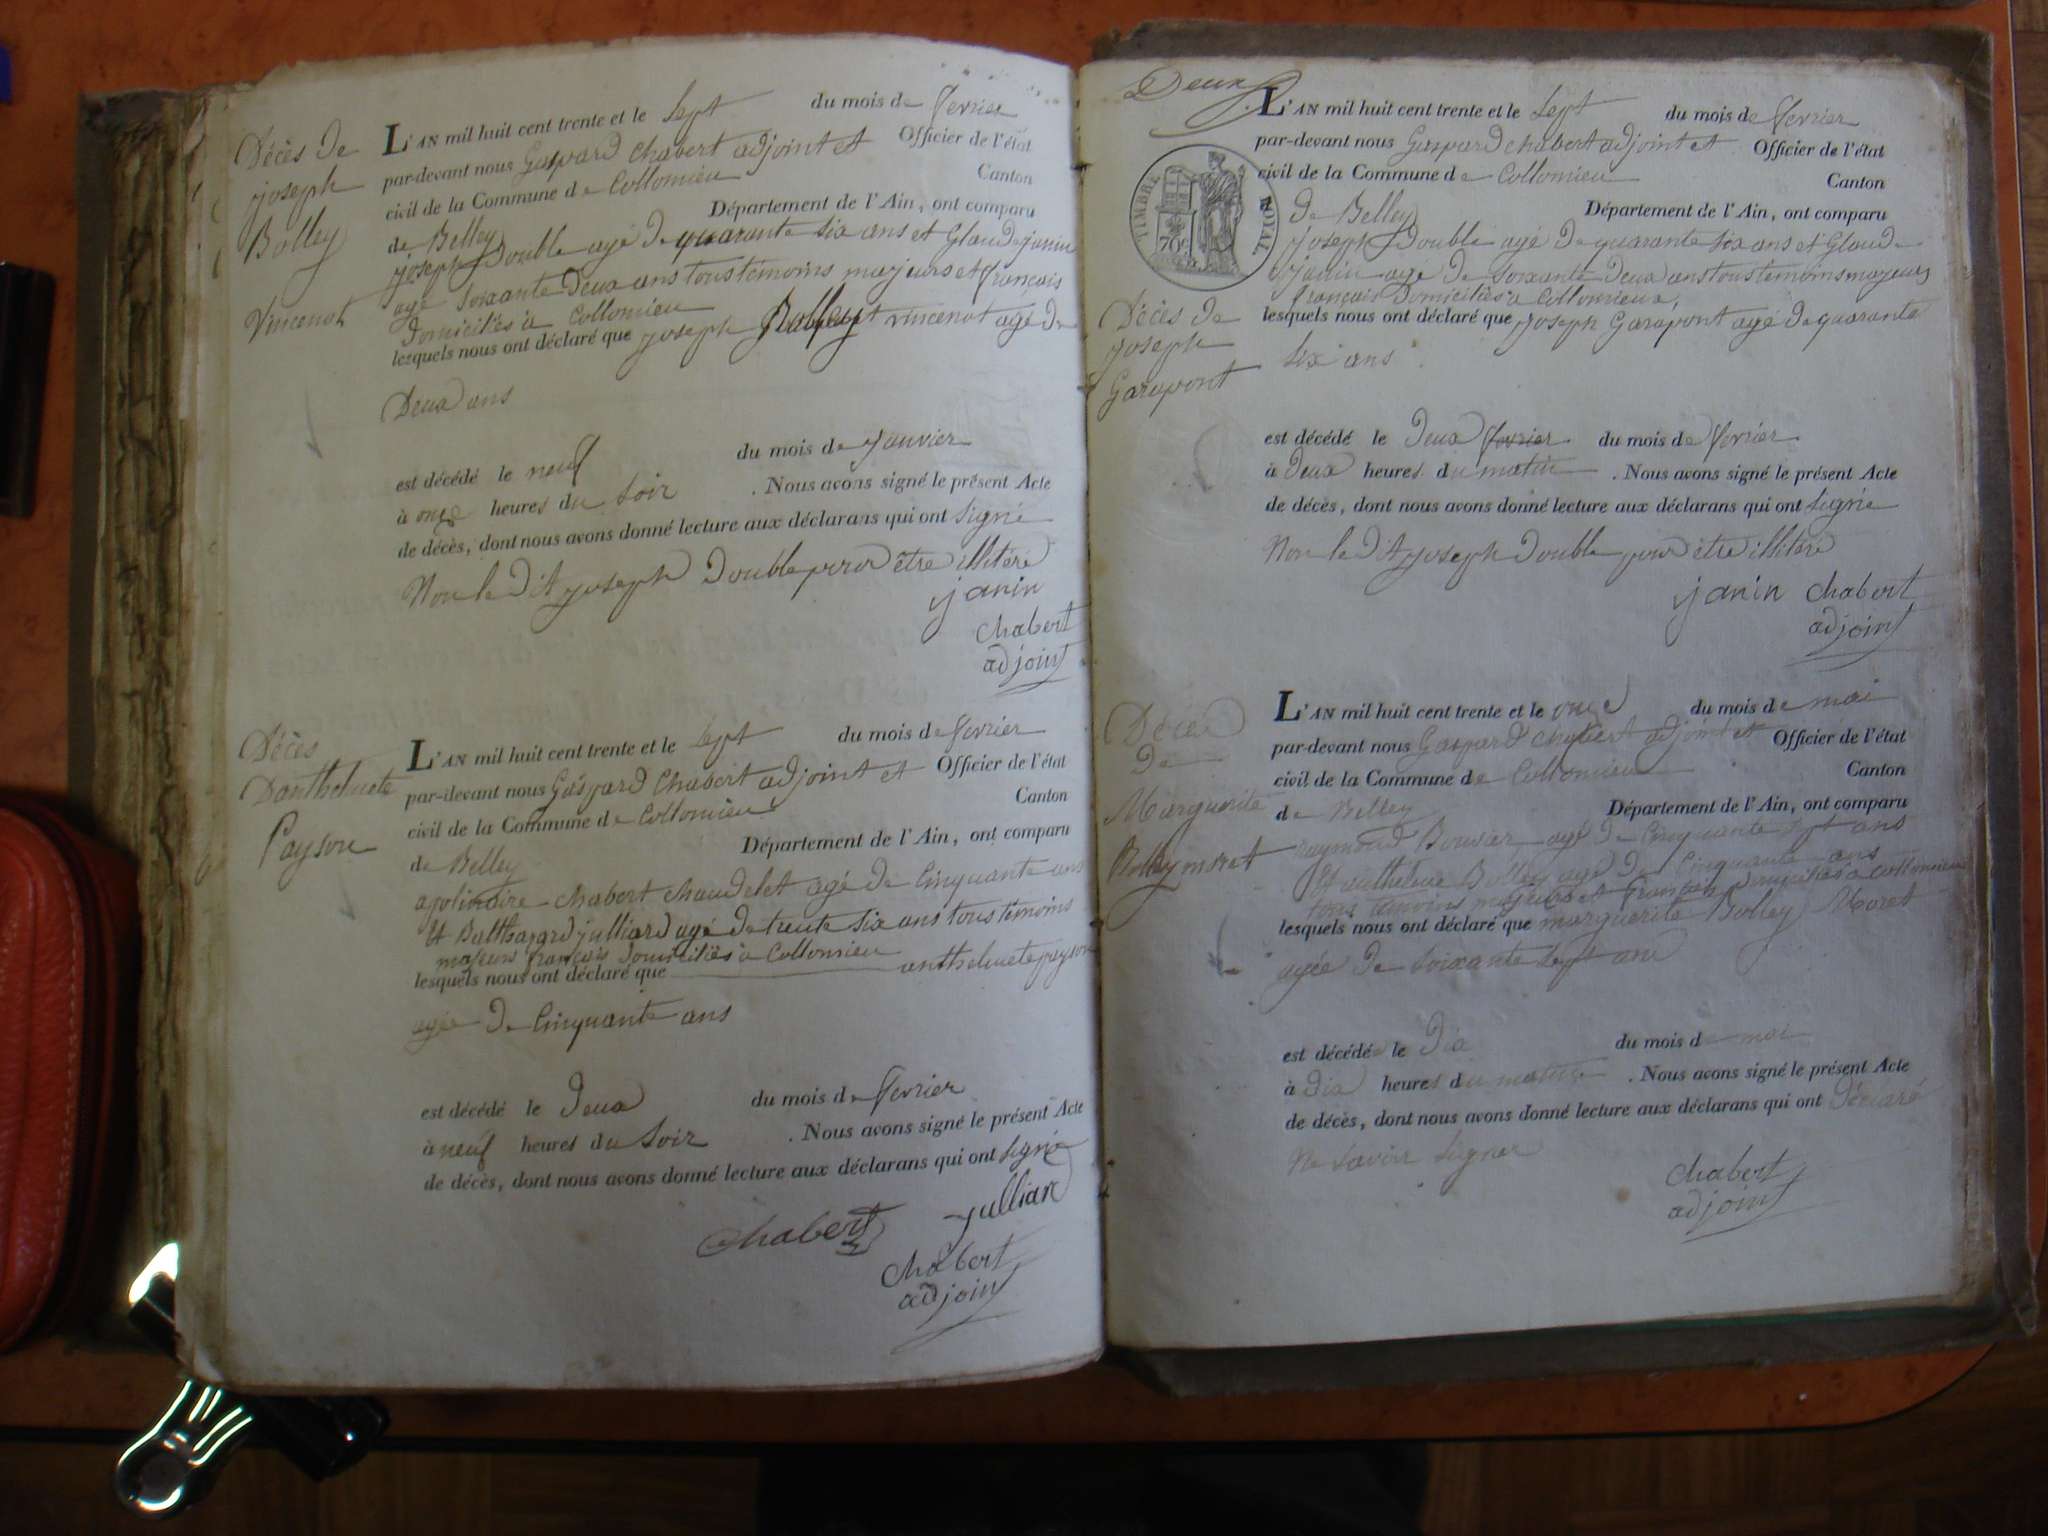 Décès de
joseph
Bolley
Vincenot
L'AN mil huit cent trente et le sept du mois de fevrier
par-devant nous Gaspard Chabert adjoint et Officier de l'état
civil de la Commune de Collomieu Canton
de Belley Département de l'Ain, ont comparu
joseph Double agé de quarante six ans et Glaude janin
agé soixante Deux ans tous témoins majeurs et français
Domiciliés à Collomieu
lesquels nous ont déclaré que joseph Bolley vincenot agé de
Deux ans
est décédé le neuf du mois de janvier
à onze heures du soir . Nous avons signé le présent Acte
de décès, dont nous avons donné lecture aux déclarans qui ont signé
Non le dit joseph Double pour être illitéré
janin
chabert
adjoint
Décès
Danthelmete
Payson
L'AN mil huit cent trente et le sept du mois de fevrier
par-devant nous Gaspard Chabert adjoint et Officier de l'état
civil de la Commune de Collomieu Canton
de Belley Département de l'Ain, ont comparu
apolinaire Chabert Chaudelet agé de Cinquante ans
Et Balthazard julliard agé de trente six ans tous témoins
majeurs français Domiciliés à Collomieu
lesquels nous ont déclaré que anthelmete payson
agée de Cinquante ans
est décédé le Deux du mois de fevrier
à neuf heures du soir . Nous avons signé le présent Acte
de décès, dont nous avons donné lecture aux déclarans qui ont signé
chabert julliard
chabert
adjoint
Deux
TIMBRE ROYAL
70c
Décès de
joseph
Garapont
L'AN mil huit cent trente et le sept du mois de fevrier
par-devant nous Gaspard chabert adjoint et Officier de l'état
civil de la Commune de Collomieu Canton
de Belley Département de l'Ain, ont comparu
joseph Double agé de quarante six ans et Glaude
janin agé de soixante Deux ans tous temoins majeurs
français Domiciliés à Collomieux,
lesquels nous ont déclaré que joseph Garapont agé de quarante
six ans
est décédé le Deux fevrier du mois de fevrier
à Deux heures du matin . Nous avons signé le présent Acte
de décès, dont nous avons donné lecture aux déclarans qui ont signé
Non le dit joseph Double pour être illitéré
janin chabert
adjoint
Décès
De
Marguerite
Bolley moret
L'AN mil huit cent trente et le onze du mois de mai
par-devant nous Gaspard Chabert adjoint et Officier de l'état
civil de la Commune de Collomieu Canton
de Belley Département de l'Ain, ont comparu
raymond Bouvier agé de Cinquante sept ans
Et anthelme Bolley agé de Cinquante ans
tous témoins majeurs et français Domiciliés à Collomieu
lesquels nous ont déclaré que marguerite Bolley Moret
agée de soixante sept ans
est décédée le Dix du mois de mai
à Dix heures du matin . Nous avons signé le présent Acte
de décès, dont nous avons donné lecture aux déclarans qui ont Déclaré
Ne savoir signer
chabert
adjoint